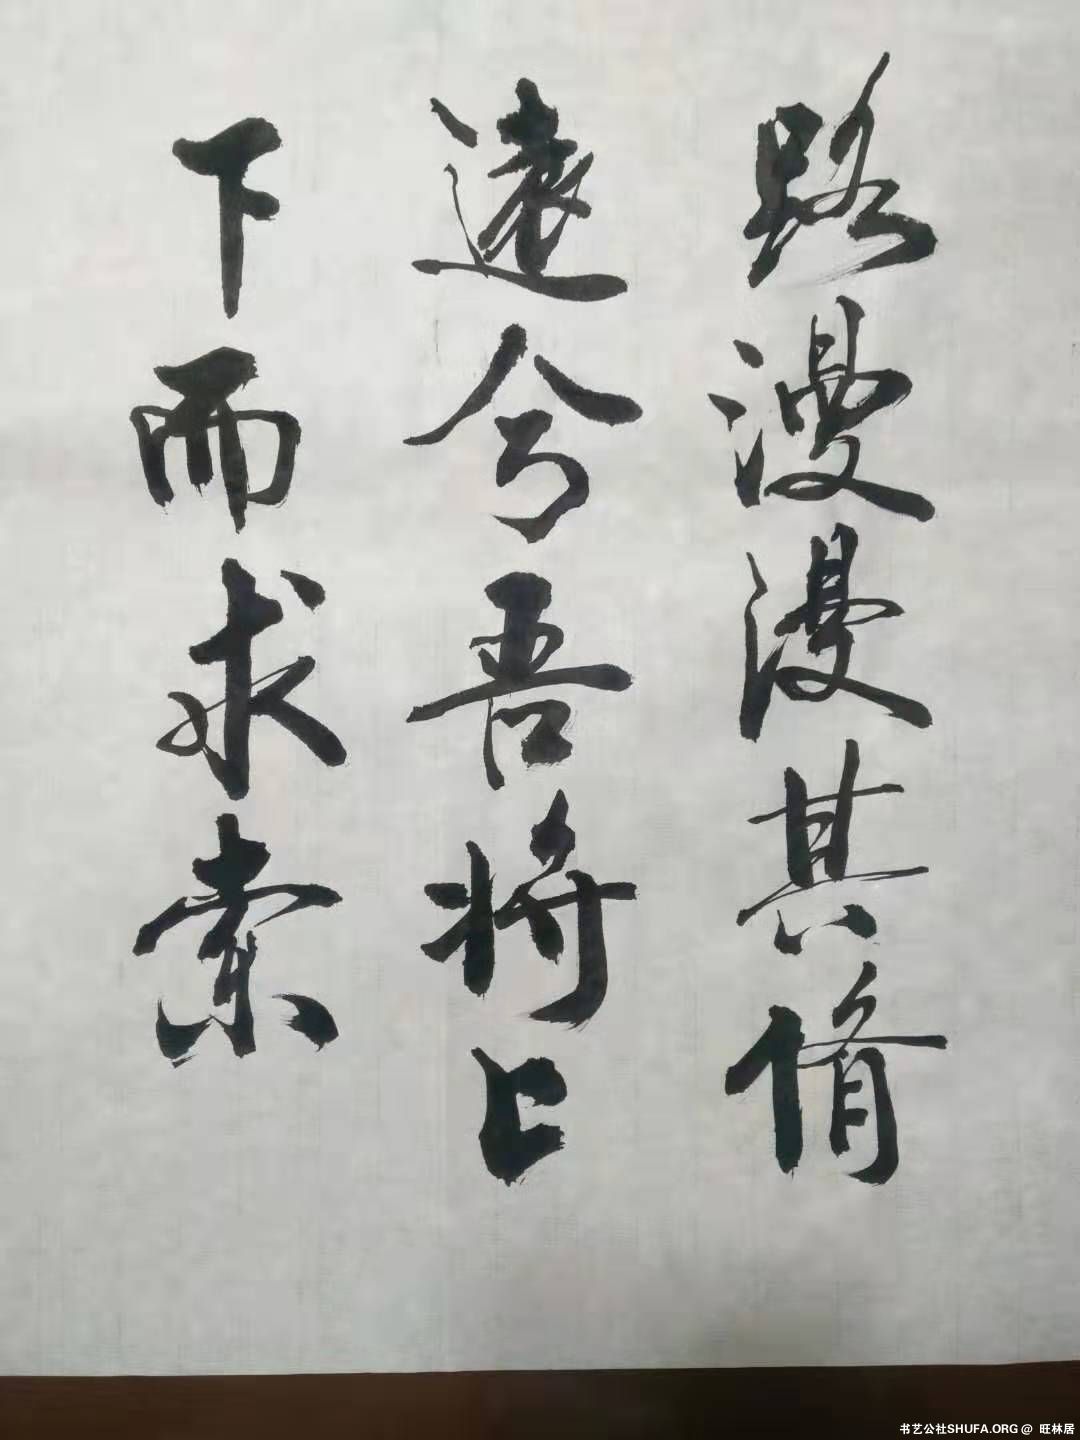 路漫漫其脩
遠兮吾将上
下而求索
书艺公社SHUFA.ORG @ 旺林居